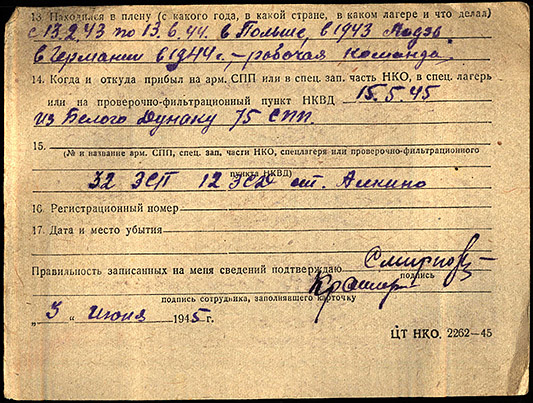 13. Находился в плену (с какого года, в какой стране, в каком лагере и что делал)
с 13.2.43 по 13.6.44. в Польше, в 1943 Лодзь
в Германии в 1944 г. – рабочая команда.
14. Когда и откуда прибыл на арм. СПП или в спец. зап. часть НКО, в спец. лагерь
или на проверочно-фильтрационный пункт НКВД 15.5.45
из Белого Дунаку 75 СПП.
15.
(№ и название арм. СПП, спец. зап. части НКО, спецлагеря или проверочно-фильтрационного
пункта НКВД)
32 ЗСП 12 ЗСД ст. Алкино
16. Регистрационный номер
17. Дата и место убытия
Правильность записанных на меня сведений подтверждаю Смирнов
подпись
подпись сотрудника, заполнявшего карточку
„3“ июня 1945 г.
ЦТ НКО. 2262—45